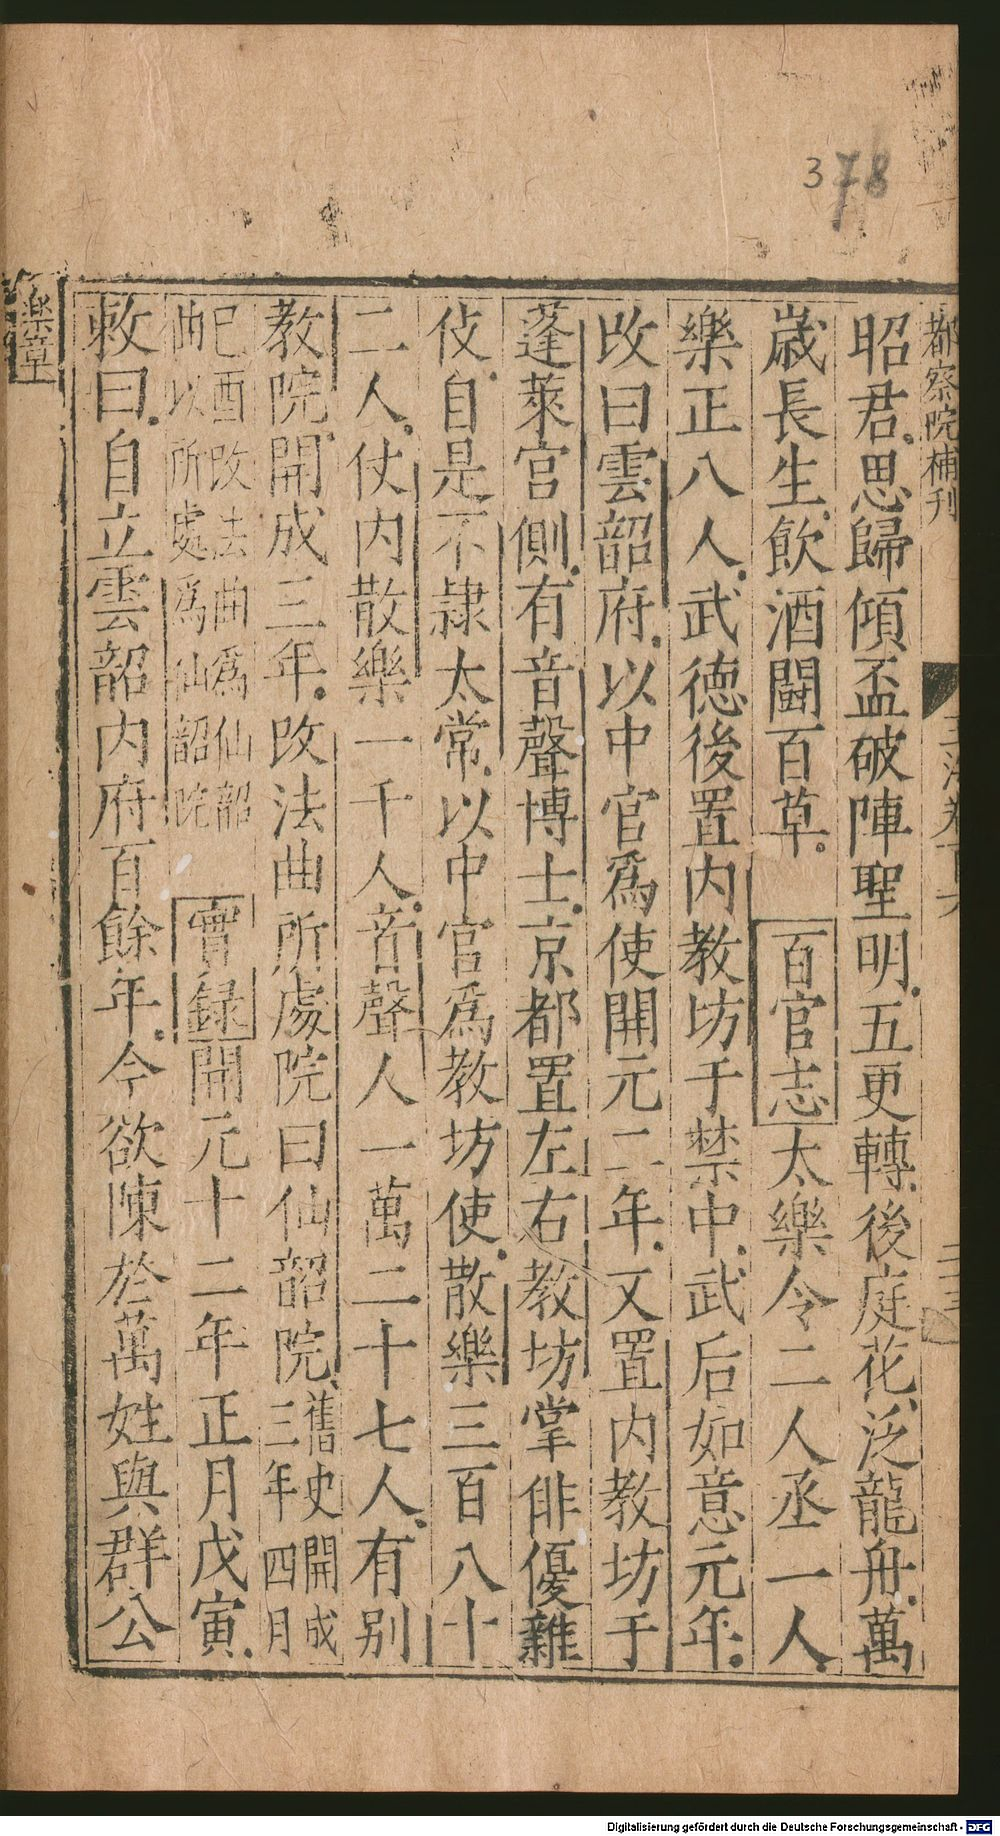 378
都察院補刊
昭君思歸傾盃破陣聖明五更轉後庭花泛龍舟萬
歲長生飲酒鬪百草 百官志太樂令二人丞一人
樂正八人武徳後置内教坊于禁中武后如意元年
攺曰雲韶府以中官爲使開元二年又置内教坊于
蓬萊宫側有音聲博士京都置左右教坊掌俳優雜
伎自是不隷太常以中官爲教坊使散樂三百八十
二人仗内散樂一千人音聲人一萬二十七人有别
教院開成三年攺法曲所處院曰仙韶院舊史開成
三年四月
己酉攺法曲爲仙韶
曲以所處爲仙韶院
實録開元十二年正月戊寅
敕曰自立雲韶内府百餘年今欲陳於萬姓與群公
樂章
Digitalisierung gefördert durch die Deutsche Forschungsgemeinschaft - DFG